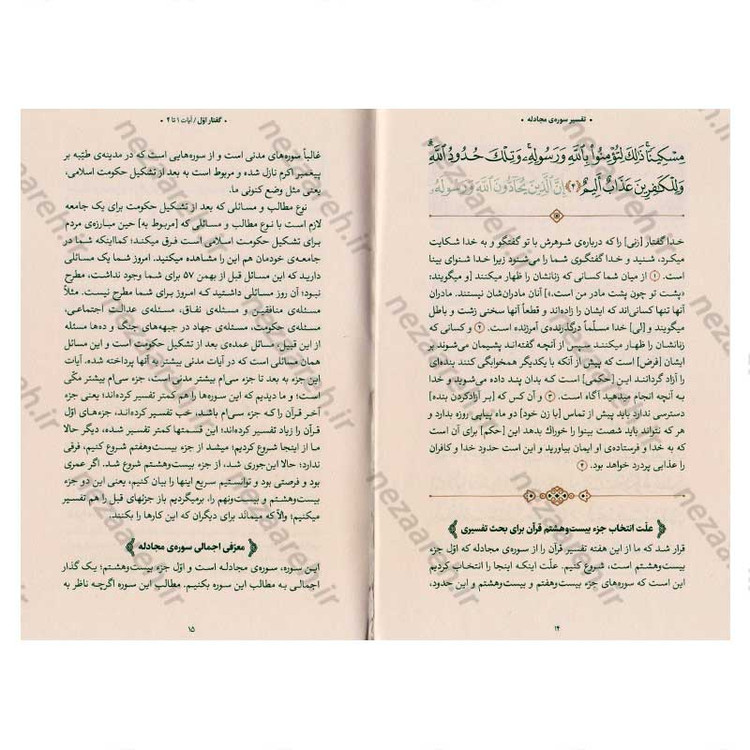 • تفسیر سوره‌ی مجادله •
مِسكينًا ذٰلِكَ لِتُؤمِنوا بِاللهِ وَ رَسولِهِ وَ تِلكَ حُدودُ اللهِ
وَ لِلكٰفِرينَ عَذابٌ اَليمٌ (۴) اِنَّ الَّذينَ يُحآدّونَ اللهَ وَ رَسولَهُ
خدا گفتار [زنی] را که درباره‌ی شوهرش با تو گفتگو و به خدا شکایت
میکرد، شنید و خدا گفتگوی شما را می‌شنود زیرا خدا شنوای بینا
است. ۱ از میان شما کسانی که زنانشان را ظهار میکنند [و میگویند:
«پشت تو چون پشت مادر من است،»] آنان مادران‌شان نیستند. مادران
آنها تنها کسانی‌اند که ایشان را زاده‌اند و قطعاً آنها سخنی زشت و باطل
میگویند و [لی] خدا مسلّماً درگذرنده‌ی آمرزنده است. ۲ و کسانی که
زنانشان را ظهار میکنند سپس از آنچه گفته‌اند پشیمان می‌شوند بر
ایشان [فرض] است که پیش از آنکه با یکدیگر همخوابگی کنند بنده‌ای
را آزاد گردانند این [حکمی] است که بدان پند داده می‌شوید و خدا
به آنچه انجام میدهید آگاه است. ۳ و آن کس که [بر آزادکردن بنده]
دسترسی ندارد باید پیش از تماس [با زن خود] دو ماه پیاپی روزه بدارد و
هر که نتواند باید شصت بینوا را خوراک بدهد این [حکم] برای آن است
که به خدا و فرستاده‌ی او ایمان بیاورید و این است حدود خدا و کافران
را عذابی پردرد خواهد بود. ۴
علّت انتخاب جزء بیست‌وهشتم قرآن برای بحث تفسیری
قرار شد که ما از این هفته تفسیر قرآن را از سوره‌ی مجادله که اوّل جزء
بیست‌وهشتم است، شروع کنیم. علّت اینکه اینجا را انتخاب کردیم
این است که سوره‌های جزء بیست‌وهفتم و بیست‌وهشتم و این حدود،
۱۴
• گفتار اوّل / آیات ۱ تا ۴ •
غالباً سوره‌های مدنی است و از سوره‌هایی است که در مدینه‌ی طیّبه بر
پیغمبر اکرم نازل شده و مربوط است به بعد از تشکیل حکومت اسلامی،
یعنی مثل وضع کنونی ما.
نوع مطالب و مسائلی که بعد از تشکیل حکومت برای یک جامعه
لازم است با نوع مطالب و مسائلی که [مربوط به] حین مبارزه‌ی مردم
برای تشکیل حکومت اسلامی است فرق میکند؛ کمااینکه شما در
جامعه‌ی خودمان هم این را مشاهده میکنید. امروز شما یک مسائلی
دارید که این مسائل قبل از بهمن ۵۷ برای شما وجود نداشت، مطرح
نبود؛ آن روز مسائلی داشتید که امروز برای شما مطرح نیست. مثلاً
مسئله‌ی منافقین و مسئله‌ی نفاق، مسئله‌ی عدالت اجتماعی،
مسئله‌ی حکومت، مسئله‌ی جهاد در جبهه‌های جنگ و ده‌ها مسئله
از این قبیل، مسائل عمده‌ی بعد از تشکیل حکومت است و این مسائل
همان مسائلی است که در آیات مدنی بیشتر به آنها پرداخته شده. آیات
این جزء به بعد تا جزء سی‌ام بیشتر مدنی است، جزء سی‌ام بیشتر مکّی
است؛ و ما دیدیم که این سوره‌ها را هم کمتر تفسیر کرده‌اند؛ یعنی جزء
آخر قرآن را که جزء سی‌ام باشد، خب تفسیر کرده‌اند، جزءهای اوّل
قرآن را زیاد تفسیر کرده‌اند؛ این قسمتها کمتر تفسیر شده، دیگر حالا
ما از اینجا شروع کردیم؛ میشد از جزء بیست‌وهفتم شروع کنیم، فرقی
ندارد؛ حالا این‌جوری شد، از جزء بیست‌وهشتم شروع شد. اگر عمری
بود و فرصتی بود و توانستیم سریع اینها را بیان کنیم، یعنی این دو جزء
بیست‌وهشتم و بیست‌ونهم را، برمیگردیم باز جزئهای قبل را هم تفسیر
میکنیم؛ والّا که میماند برای دیگران که این کارها را بکنند.
معرّفی اجمالی سوره‌ی مجادله
این سوره، سوره‌ی مجادله است و اوّل جزء بیست‌وهشتم؛ یک گذار
اجمالی به مطالب این سوره بکنیم. مطالب این سوره اگرچه ناظر به
۱۵
nezaareh.ir